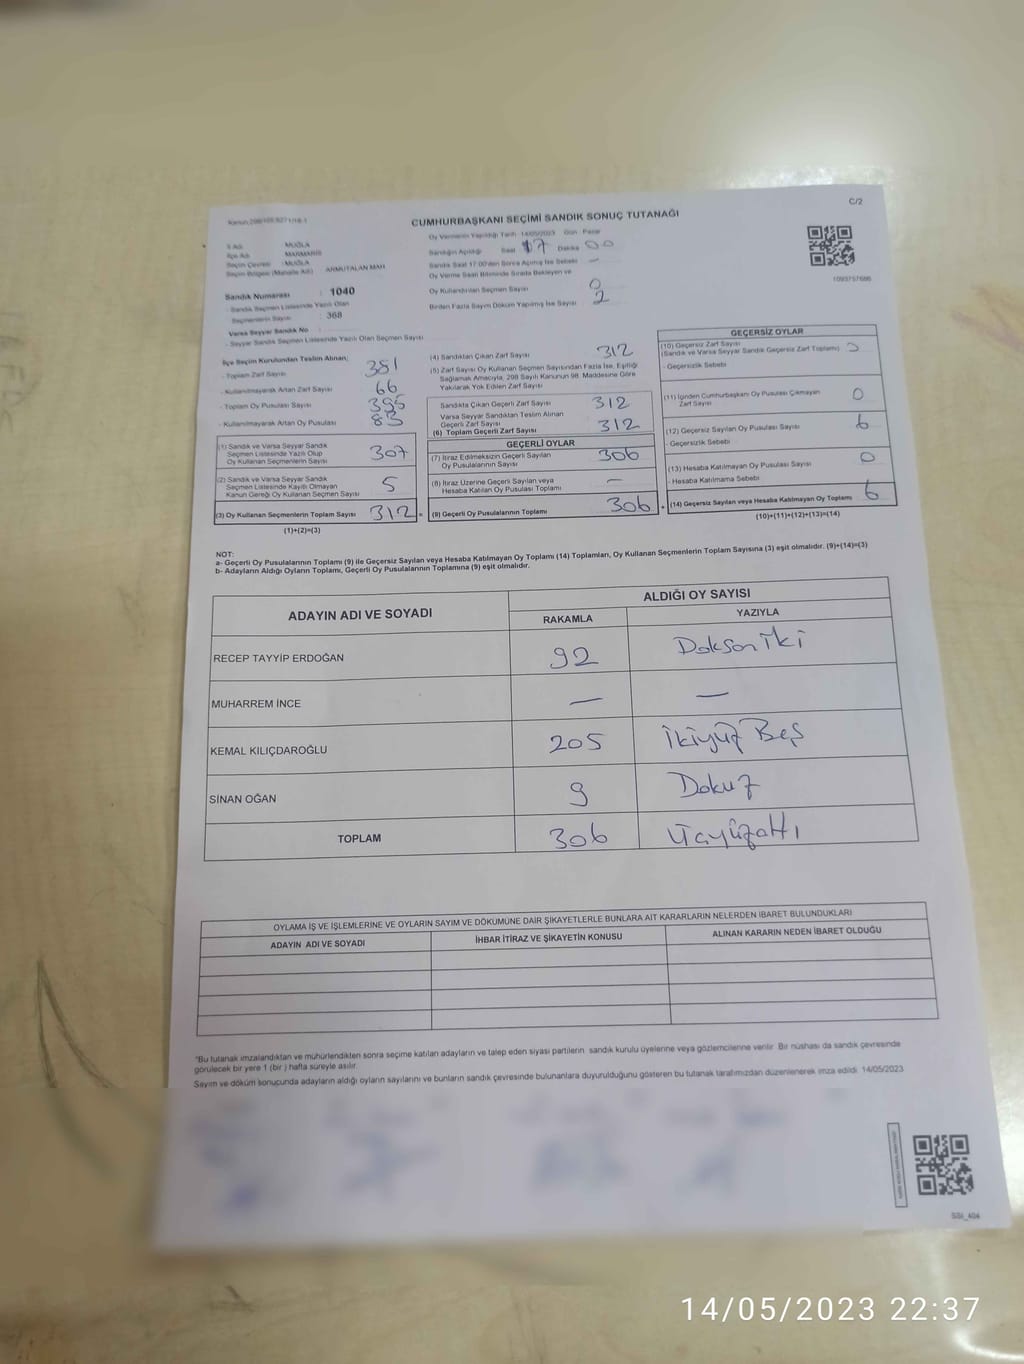 C/2
CUMHURBAŞKANI SEÇİMİ SANDIK SONUÇ TUTANAĞI
İl Adı : MUĞLA
İlçe Adı : MARMARİS
Seçim Çevresi : MUĞLA
Seçim Bölgesi (Mahalle Adı) : ARMUTALAN MAH
Sandık Numarası : 1040
- Sandık Seçmen Listesinde Yazılı Olan
Seçmenlerin Sayısı : 368
Varsa Seyyar Sandık No
- Seyyar Sandık Seçmen Listesinde Yazılı Olan Seçmen Sayısı
Oy Vermenin Yapıldığı Tarih 14/05/2023 Gün Pazar
Sandığın Açıldığı Saat 17 Dakika 00
Sandık Saat 17:00'den Sonra Açılmış İse Sebebi —
Oy Verme Saati Bitiminde Sırada Bekleyen ve
Oy Kullandırılan Seçmen Sayısı 0
Birden Fazla Sayım Döküm Yapılmış İse Sayısı 2
1093757686
İlçe Seçim Kurulundan Teslim Alınan;
- Toplam Zarf Sayısı 381
- Kullanılmayarak Artan Zarf Sayısı 66
- Toplam Oy Pusulası Sayısı
- Kullanılmayarak Artan Oy Pusulası 83
(1) Sandık ve Varsa Seyyar Sandık
Seçmen Listesinde Yazılı Olup
Oy Kullanan Seçmenlerin Sayısı 307
(2) Sandık ve Varsa Seyyar Sandık
Seçmen Listesinde Kayıtlı Olmayan
Kanun Gereği Oy Kullanan Seçmen Sayısı 5
(3) Oy Kullanan Seçmenlerin Toplam Sayısı 312 =
(1)+(2)=(3)
(4) Sandıktan Çıkan Zarf Sayısı 312
(5) Zarf Sayısı Oy Kullanan Seçmen Sayısından Fazla İse, Eşitliği
Sağlamak Amacıyla, 298 Sayılı Kanunun 98. Maddesine Göre
Yakılarak Yok Edilen Zarf Sayısı
Sandıkta Çıkan Geçerli Zarf Sayısı 312
Varsa Seyyar Sandıktan Teslim Alınan
Geçerli Zarf Sayısı
(6) Toplam Geçerli Zarf Sayısı 312
GEÇERLİ OYLAR
(7) İtiraz Edilmeksizin Geçerli Sayılan
Oy Pusulalarının Sayısı 306
(8) İtiraz Üzerine Geçerli Sayılan veya
Hesaba Katılan Oy Pusulası Toplamı —
(9) Geçerli Oy Pusulalarının Toplamı 306 +
GEÇERSİZ OYLAR
(10) Geçersiz Zarf Sayısı
(Sandık ve Varsa Seyyar Sandık Geçersiz Zarf Toplamı)
- Geçersizlik Sebebi
(11) İçinden Cumhurbaşkanı Oy Pusulası Çıkmayan
Zarf Sayısı 0
(12) Geçersiz Sayılan Oy Pusulası Sayısı 6
- Geçersizlik Sebebi
(13) Hesaba Katılmayan Oy Pusulası Sayısı 0
- Hesaba Katılmama Sebebi
(14) Geçersiz Sayılan veya Hesaba Katılmayan Oy Toplamı 6
(10)+(11)+(12)+(13)=(14)
NOT:
a- Geçerli Oy Pusulalarının Toplamı (9) ile Geçersiz Sayılan veya Hesaba Katılmayan Oy Toplamı (14) Toplamları, Oy Kullanan Seçmenlerin Toplam Sayısına (3) eşit olmalıdır. (9)+(14)=(3)
b- Adayların Aldığı Oyların Toplamı, Geçerli Oy Pusulalarının Toplamına (9) eşit olmalıdır.
ADAYIN ADI VE SOYADI ALDIĞI OY SAYISI
RAKAMLA YAZIYLA
RECEP TAYYİP ERDOĞAN 92 Doksan iki
MUHARREM İNCE — —
KEMAL KILIÇDAROĞLU 205 İkiyüz Beş
SİNAN OĞAN 9 Dokuz
TOPLAM 306 Üçyüzaltı
OYLAMA İŞ VE İŞLEMLERİNE VE OYLARIN SAYIM VE DÖKÜMÜNE DAİR ŞİKAYETLERLE BUNLARA AİT KARARLARIN NELERDEN İBARET BULUNDUKLARI
ADAYIN ADI VE SOYADI İHBAR İTİRAZ VE ŞİKAYETİN KONUSU ALINAN KARARIN NEDEN İBARET OLDUĞU
"Bu tutanak imzalandıktan ve mühürlendikten sonra seçime katılan adayların ve talep eden siyasi partilerin sandık kurulu üyelerine veya gözlemcilerine verilir. Bir nüshası da sandık çevresinde
görülecek bir yere 1 (bir) hafta süreyle asılır.
Sayım ve döküm sonucunda adayların aldığı oyların sayılarını ve bunların sandık çevresinde bulunanlara duyurulduğunu gösteren bu tutanak tarafımızdan düzenlenerek imza edildi. 14/05/2023
SSI_404
14/05/2023 22:37